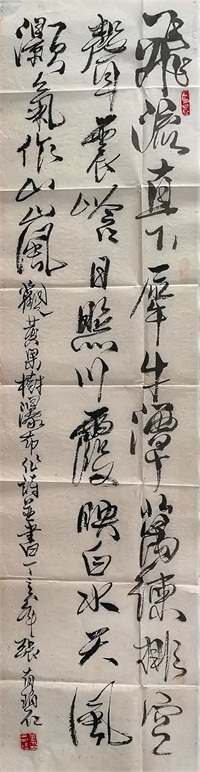 飛流直下犀牛潭萬練排空
聲震峪日照川霞映白水天風
灝氣作山嵐
觀黃果樹瀑布作詩並書丁亥年張有